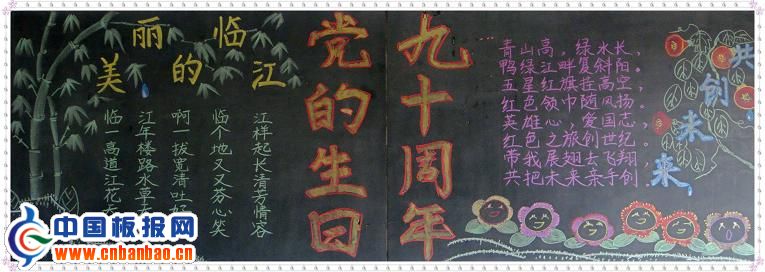 美丽的临江
临江啊临江
一年一个样
高楼拔地起
道路宽又长
江水清又清
花草吐芬芳
好心情
笑容
党的生日
九十周年
青山高，绿水长，
鸭绿江畔复斜阳。
五星红旗挂高空，
红色领巾随风扬。
英雄心，爱国志，
红色之旅创世纪。
带我展翅去飞翔，
共把未来亲手创。
共创未来
中国板报网
www.cnbanbao.cn